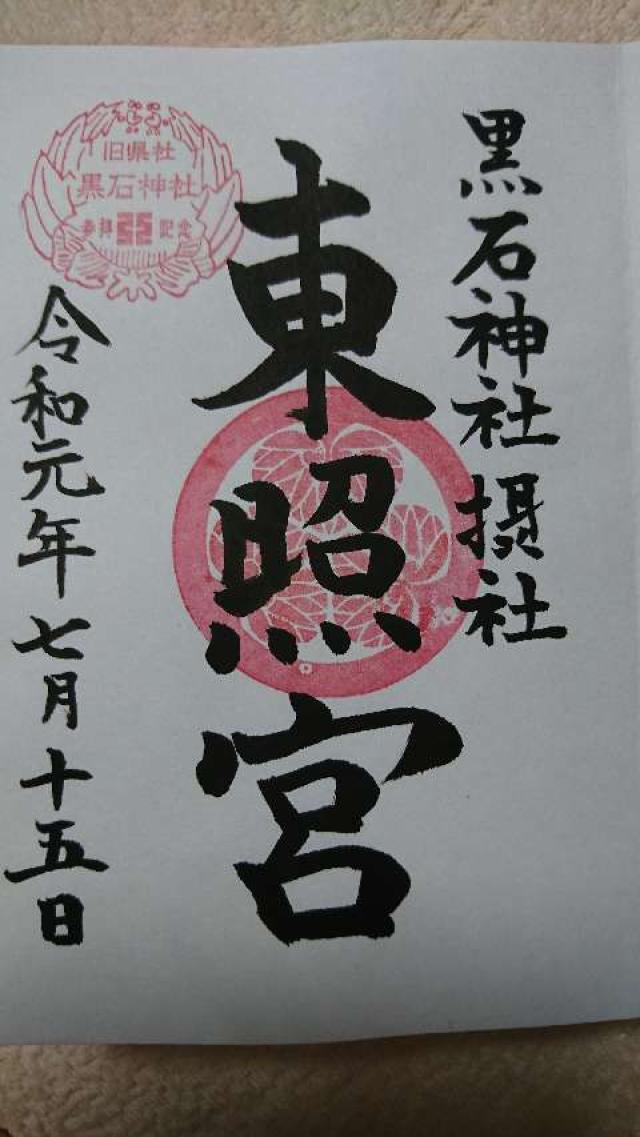 黒石神社摂社
東照宮
旧県社
黒石神社
参拝
記念
令和元年七月十五日